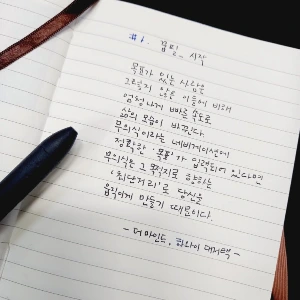 #1. 끌림_시작
목표가 있는 사람은
그렇지 않은 이들에 비해
엄청나게 빠른 속도로
삶의 모습이 바뀐다.
무의식이라는 네비게이션에
정확한 '목표'가 입력되어 있다면
무의식은 그 목적지로 향하는
'최단거리'로 당신을
움직이게 만들기 때문이다.
- 더 마인드, 하와이 대저택 -